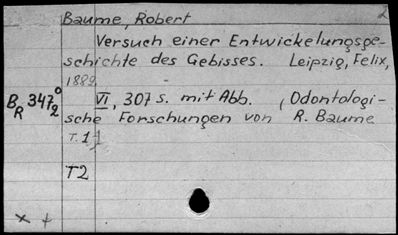 Baume, Robert
Versuch einer Entwickelungsge-
schichte des Gebisses. Leipzig, Felix,
1889.
BR 347 0/2 VI, 307 s. mit Abb. (Odontologi-
sche Forschungen von R. Baume
T. 1)
T2